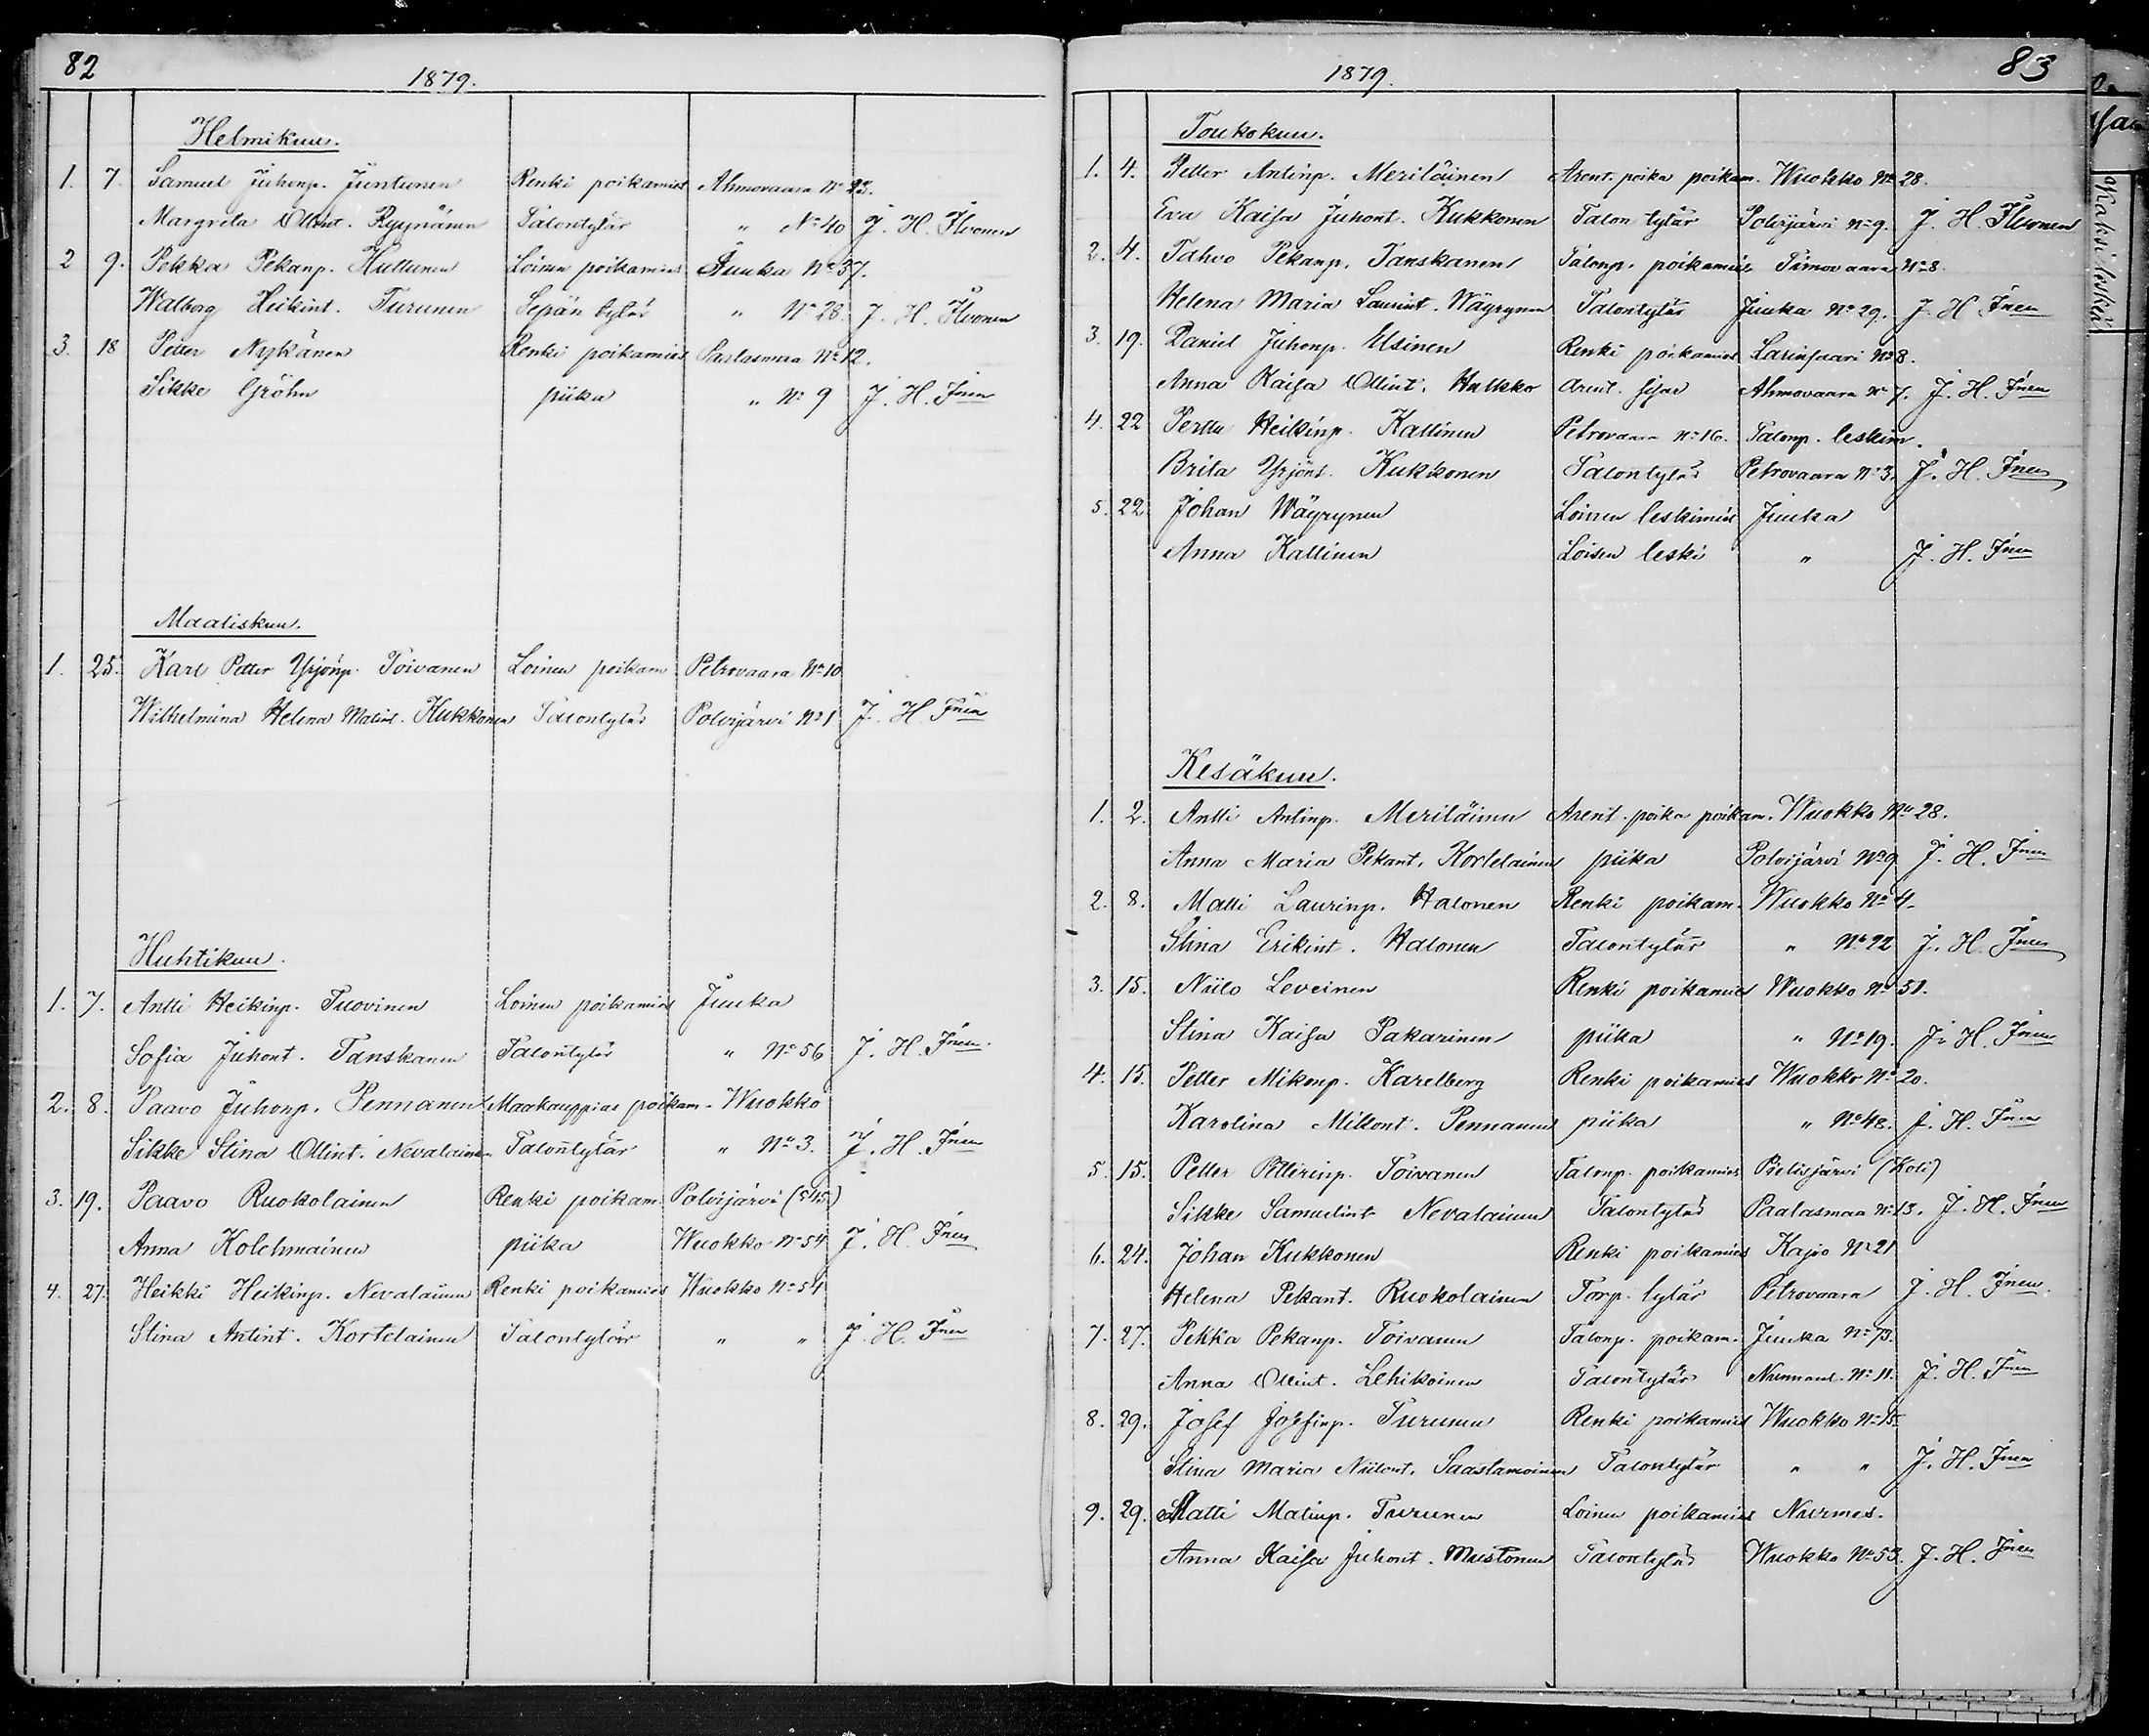 82
1879.
Helmikuu.
1. 7. Samuel Juhonp. Juntunen Renki poikamies Ahmovaara No 22.
Margreta Ollint. Ryynänen Talontytär " No 40 J. H. Ihvonen
2 9. Pekka Pekanp. Huttunen Loinen poikamies Juuka No 37.
Walborg Heikint. Turunen Sepän tytär " No 28. J. H. Ihvonen
3. 18 Petter Nykänen Renki poikamies Paalasmaa No 12.
Sikke Gröhn piika " No 9 J. H. Inen
Maaliskuu.
1. 25. Karl Petter Yrjönp. Toivanen Loinen poikam Petrovaara No 10
Wilhelmina Helena Matint. Kukkonen Talontytär Polvijärvi No 1 J. H. Inen
Huhtikuu.
1. 7. Antti Heikinp. Tuovinen Loinen poikamies Juuka
Sofia Juhont. Tanskanen Talontytär " No 56 J. H. Inen
2. 8. Paavo Juhonp. Pennanen Maakauppias poikam. Wuokko
Sikke Stina Ollint. Nevalainen Talontytär " No 3. J. H. Inen
3. 19. Paavo Ruokolainen Renki poikam. Polvijärvi (545)
Anna Kolehmainen piika Wuokko No 54 J. H. Inen
4. 27. Heikki Heikinp. Nevalainen Renki poikamies Wuokko No 54
Stina Antint. Kortelainen Talontytär " " J. H. Inen
83
1879.
Toukokuu.
1. 4. Petter Antinp. Meriläinen Arent. poika poikam. Wuokko No 28.
Eva Kaisa Juhont. Kukkonen Talon tytär Polvijärvi No 9. J. H. Ihvonen
2. 4. Tahvo Pekanp. Tanskanen Talonp. poikamies Timovaara No 8.
Helena Maria Laurint. Wäyrynen Talontytär Juuka No 29. J. H. Inen
3. 19. Daniel Juhonp. Usinen Renki poikamies Larinsaari No 8.
Anna Kaisa Ollint. Hulkko Arent. sisar Ahmovaara No 7. J. H. Inen
4. 22 Perttu Heikinp. Kallinen Petrovaara No 16. Talonp. leskim.
Brita Yrjönt. Kukkonen Talontytär Petrovaara No 3. J. H. Inen
5. 22. Johan Wäyrynen Loinen leskimies Juuka
Anna Kallinen Loisen leski " J. H. Inen
Kesäkuu.
1. 2. Antti Antinp. Meriläinen Arent. poika poikam. Wuokko No 28.
Anna Maria Pekant. Kortelainen piika Polvijärvi No 9 J. H. Inen
2. 8. Matti Laurinp. Halonen Renki poikam. Wuokko No 4.
Stina Erikint. Halonen Talontytär " No 22 J. H. Inen
3. 15. Niilo Leveinen Renki poikamies Wuokko No 51.
Stina Kaisa Pakarinen piika " No 19. J. H. Inen
4. 15. Petter Mikonp. Karelberg Renki poikamies Wuokko No 20.
Karolina Mikont. Pennanen piika " No 48. J. H. Inen
5. 15. Petter Petterinp. Toivanen Talonp. poikamies Pielisjärvi (Koli)
Sikke Samuelint Nevalainen Talontytär Paalasmaa No 13. J. H. Inen
6. 24. Johan Kukkonen Renki poikamies Kajoo No 21
Helena Pekant. Ruokolainen Torp. tytär Petrovaara J. H. Inen.
7. 27. Pekka Pekanp. Toivanen Talonp. poikam. Juuka No 73.
Anna Ollint. Lehikoinen Talontytär Nunnanl. No 11. J. H. Inen
8. 29. Josef Josefinp. Turunen Renki poikamies Wuokko No 15.
Stina Maria Niilont. Saastamoinen Talontytär " " J. H. Inen
9. 29. Matti Matinp. Turunen Loinen poikamies Nurmes.
Anna Kaisa Juhont. Mustonen Talontytär Wuokko No 53. J. H. Inen